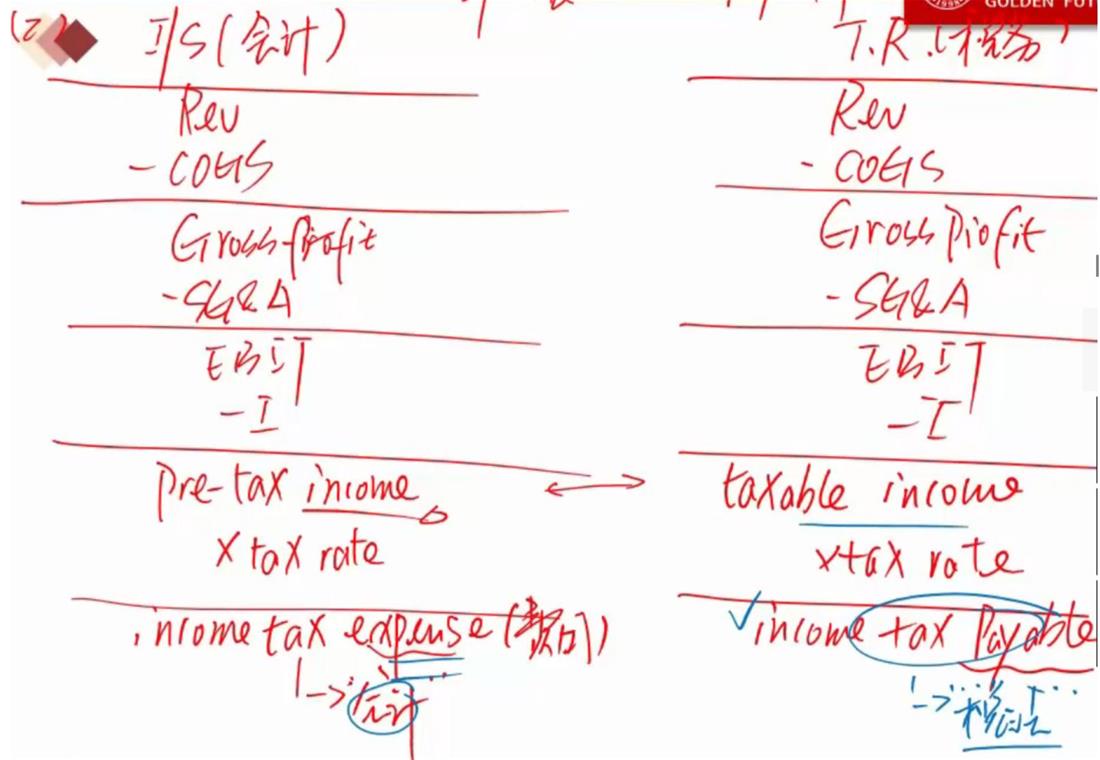 (2)
I/S (会计)
Rev
- COGS
Gross profit
- SG&A
EBIT
- I
pre-tax income
x tax rate
income tax expense (费用)
会计
GOLDEN FUT
T.R. (税务)
Rev
- COGS
Gross Profit
- SG&A
EBIT
- I
taxable income
x tax rate
income tax payable
税法